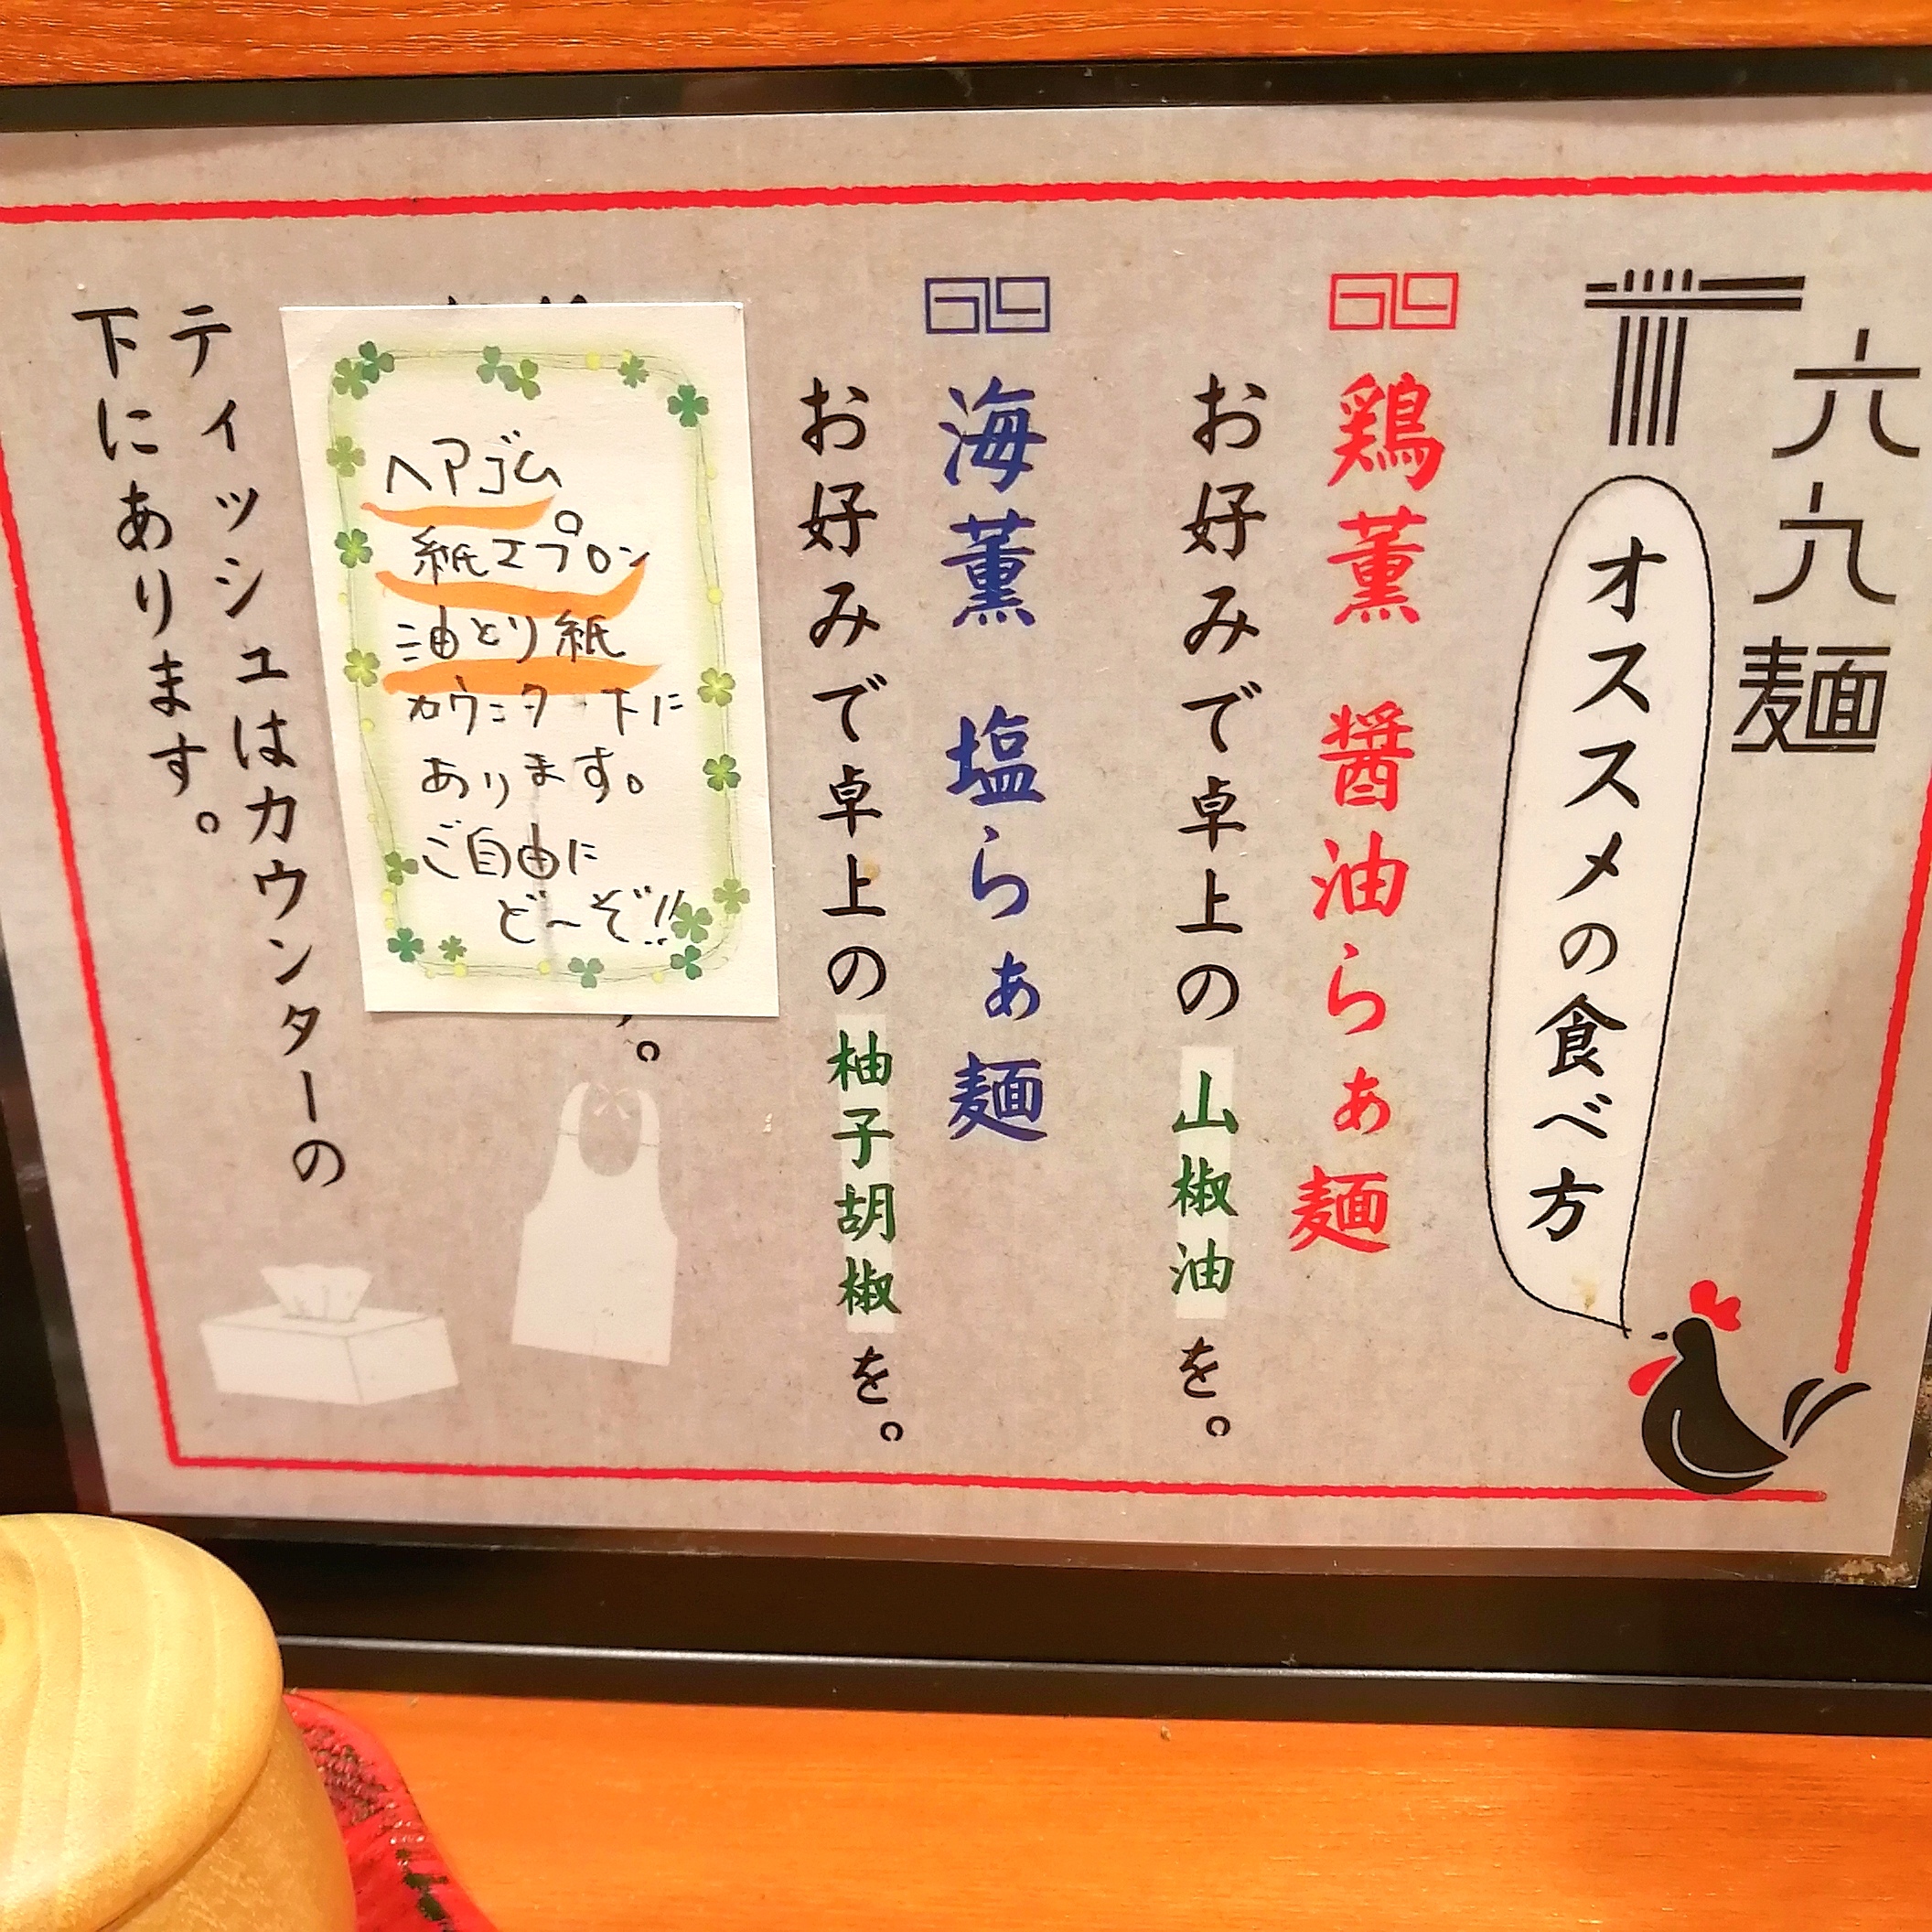 六九麺
オススメの食べ方
69
鶏薫 醤油らぁ麺
お好みで卓上の山椒油を。
69
海薫 塩らぁ麺
お好みで卓上の柚子胡椒を。
ヘアゴム
紙エプロン
油とり紙
カウンター下に
あります。
ご自由に
ど〜ぞ!!
ティッシュはカウンターの
下にあります。